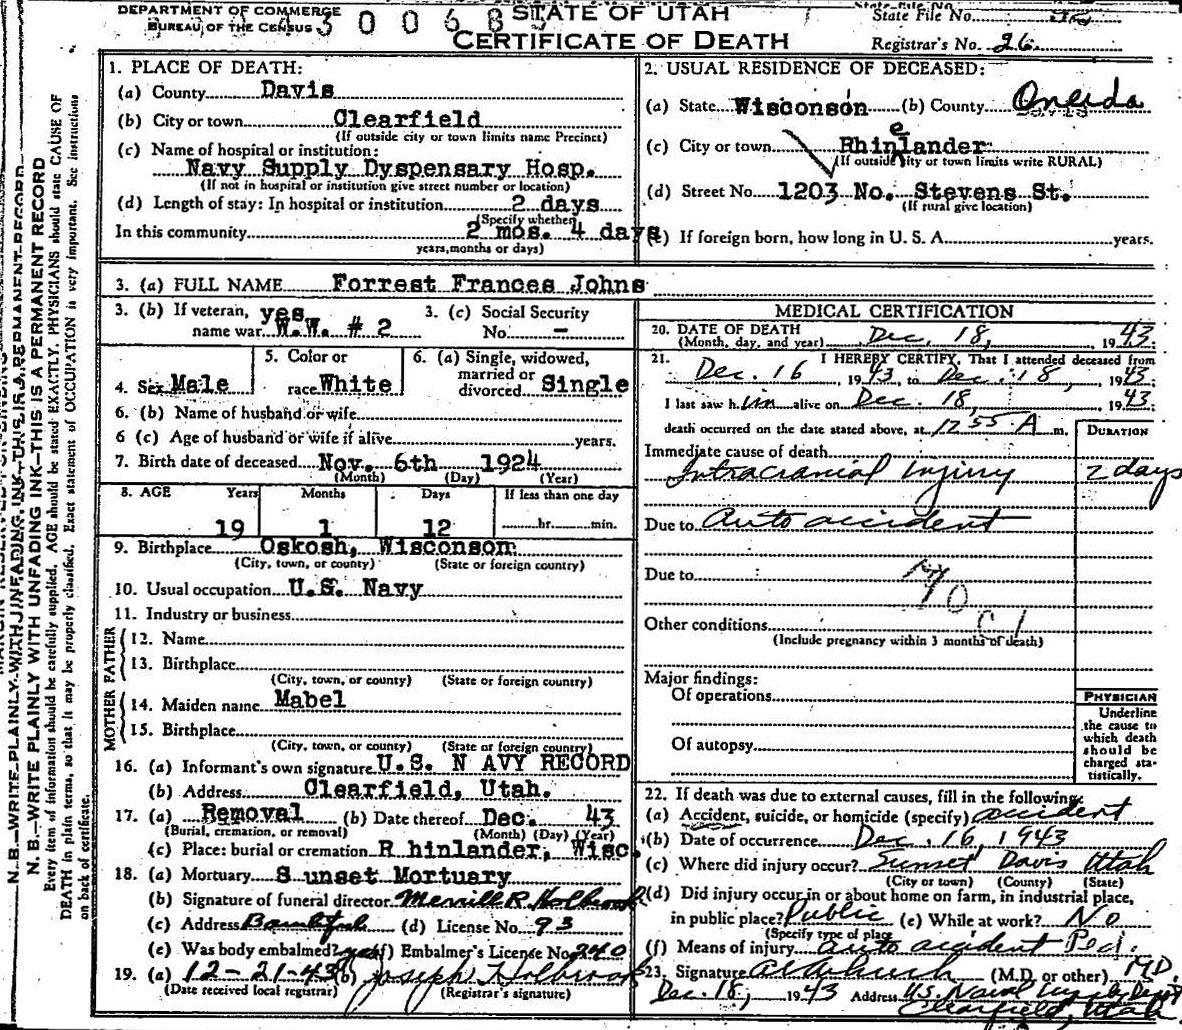 DEPARTMENT OF COMMERCE
BUREAU OF THE CENSUS
STATE OF UTAH
CERTIFICATE OF DEATH
State File No.
Registrar's No. 26
N. B.—WRITE PLAINLY WITH UNFADING INK—THIS IS A PERMANENT RECORD
Every item of information should be carefully supplied. AGE should be stated EXACTLY. PHYSICIANS should state CAUSE OF
DEATH in plain terms, so that it may be properly classified. Exact statement of OCCUPATION is very important. See instructions
on back of certificate.
1. PLACE OF DEATH:
(a) County Davis
(b) City or town Clearfield
(If outside city or town limits name Precinct)
(c) Name of hospital or institution:
Navy Supply Dyspensary Hosp.
(If not in hospital or institution give street number or location)
(d) Length of stay: In hospital or institution 2 days
(Specify whether
In this community 2 mos. 4 days
years, months or days)
2. USUAL RESIDENCE OF DECEASED:
(a) State Wisconson (b) County Oneida
(c) City or town Rhinelander
(If outside city or town limits write RURAL)
(d) Street No. 1203 No. Stevens St.
(If rural give location)
(e) If foreign born, how long in U. S. A. years.
3. (a) FULL NAME Forrest Frances Johns
3. (b) If veteran, yes
name war W.W. # 2
3. (c) Social Security
No. –
4. Sex Male
5. Color or
race White
6. (a) Single, widowed,
married or
divorced Single
6. (b) Name of husband or wife
6 (c) Age of husband or wife if alive years.
7. Birth date of deceased Nov. 6th 1924
(Month) (Day) (Year)
8. AGE Years Months Days If less than one day
19 1 12 hr. min.
9. Birthplace Oskosh, Wisconson
(City, town, or county) (State or foreign country)
10. Usual occupation U.S. Navy
11. Industry or business
FATHER
12. Name
13. Birthplace
(City, town, or county) (State or foreign country)
MOTHER
14. Maiden name Mabel
15. Birthplace
(City, town, or county) (State or foreign country)
16. (a) Informant's own signature U.S. N AVY RECORD
(b) Address Clearfield, Utah.
17. (a) Removal (b) Date thereof Dec. 43
(Burial, cremation, or removal) (Month) (Day) (Year)
(c) Place: burial or cremation R hinlander, Wisc.
18. (a) Mortuary S unset Mortuary
(b) Signature of funeral director Merrill R. Holbrook
(c) Address Bountiful (d) License No. 93
(e) Was body embalmed? yes (f) Embalmer's License No. 240
19. (a) 12-21-43 (b) Joseph Holbrook
(Date received local registrar) (Registrar's signature)
MEDICAL CERTIFICATION
20. DATE OF DEATH
(Month, day, and year) Dec. 18, 1943.
21. I HEREBY CERTIFY, That I attended deceased from
Dec. 16, 1943, to Dec. 18, 1943.
I last saw him alive on Dec. 18, 1943;
death occurred on the date stated above, at 12 55 A m.
DURATION
Immediate cause of death
Intracranial Injury 2 days
Due to Auto accident
Due to
Other conditions
(Include pregnancy within 3 months of death)
Major findings:
Of operations
Of autopsy
PHYSICIAN
Underline
the cause to
which death
should be
charged sta-
tistically.
22. If death was due to external causes, fill in the following:
(a) Accident, suicide, or homicide (specify) accident
(b) Date of occurrence Dec. 16, 1943
(c) Where did injury occur? Sunset Davis Utah
(City or town) (County) (State)
(d) Did injury occur in or about home on farm, in industrial place,
in public place? Public (e) While at work? No
(Specify type of place
(f) Means of injury auto accident Ped.
23. Signature (M.D. or other) M.D.
Dec. 18, 1943 Address U.S. Naval
Clearfield, Utah